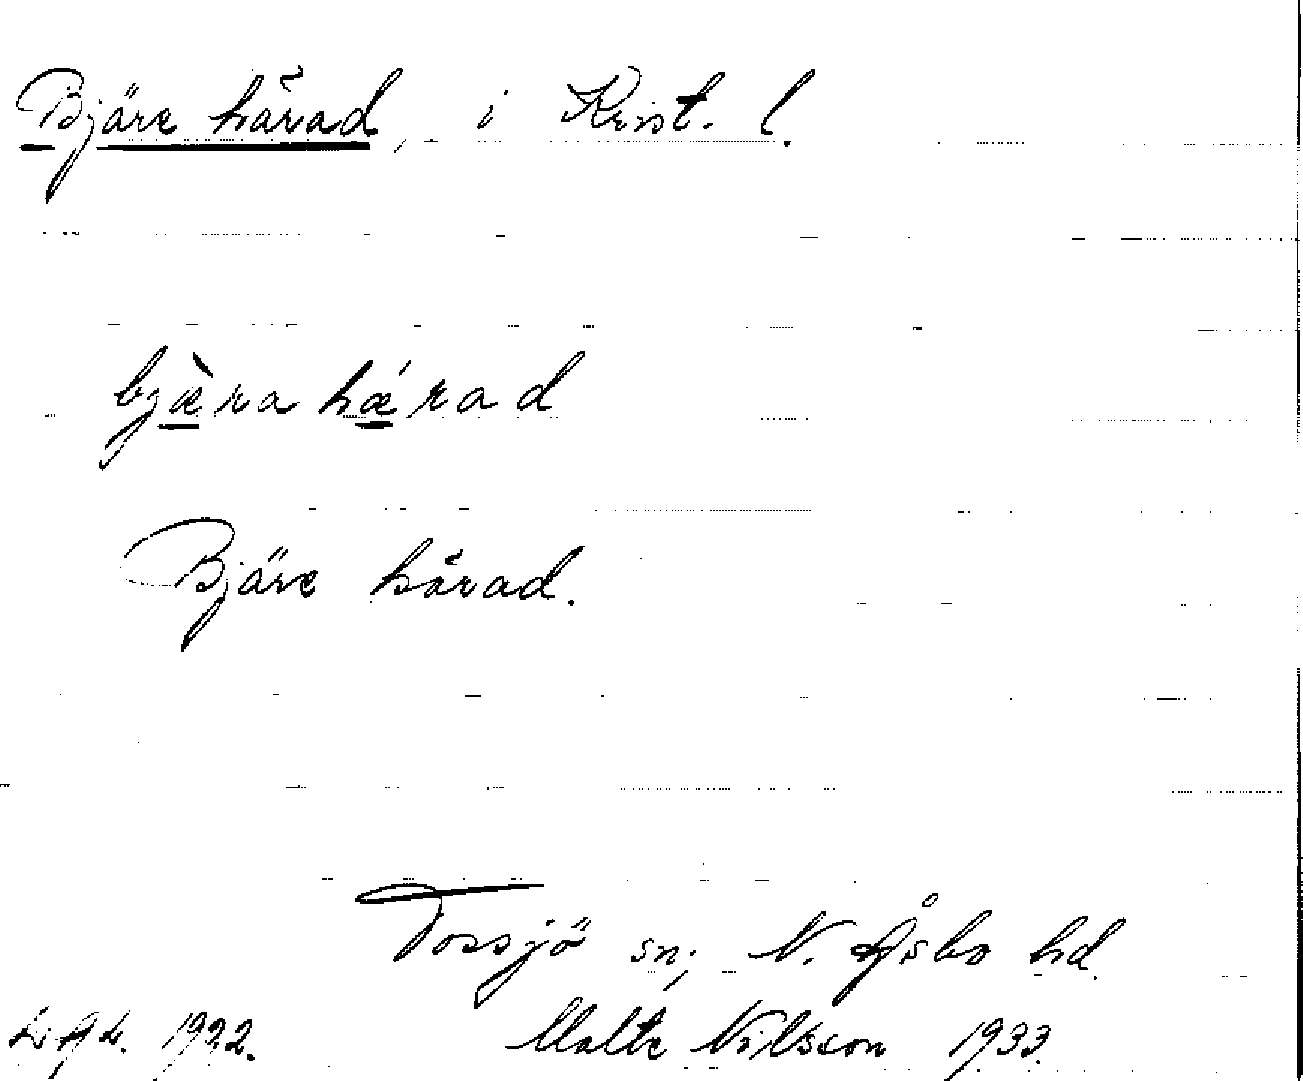 Bjäre härad, i Krist. l.
bjæ̀rahǽrad
Bjäre härad.
Tossjö sn; N. Åsbo hd.
L.A.L. 1922. Malte Nilsson 1933.